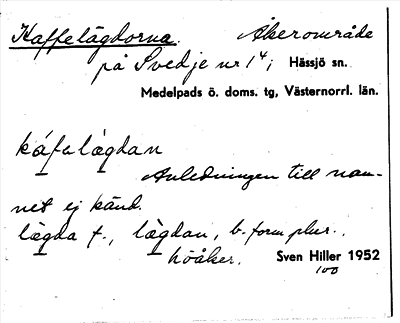 Kaffelägdorna. Åkerområde
på Svedje nr 1⁴; Hässjö sn.
Medelpads ö. doms. tg, Västernorrl. län.
káfelàgdan
Anledningen till nam-
net ej känd.
lägda f., lægdan, b. form plur.,
höåker. Sven Hiller 1952
100